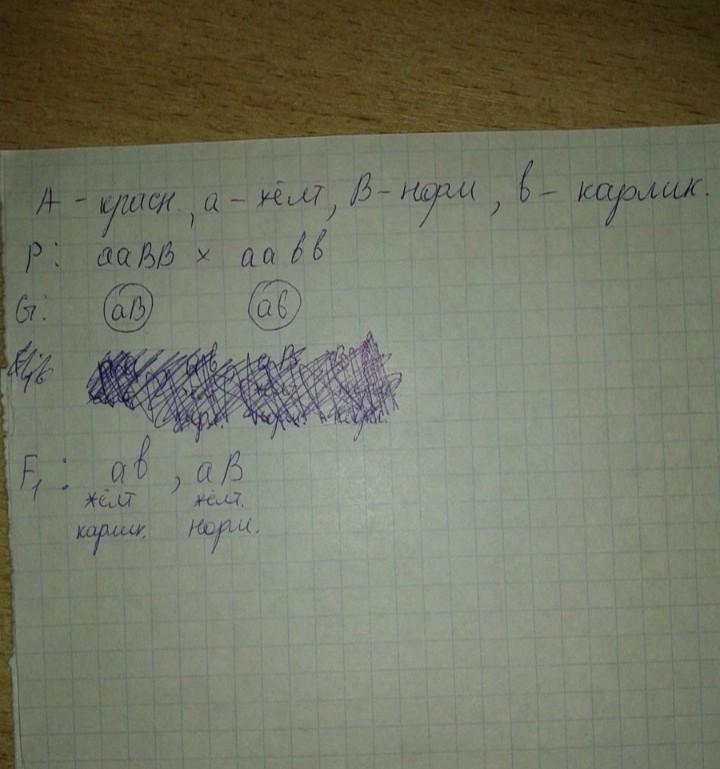 А - красн., а - жёлт, В - норм, в - карлик.
Р: ааВВ × аавв
G: аВ ав
F₁: ав, аВ
жёлт жёлт.
карлик. норм.